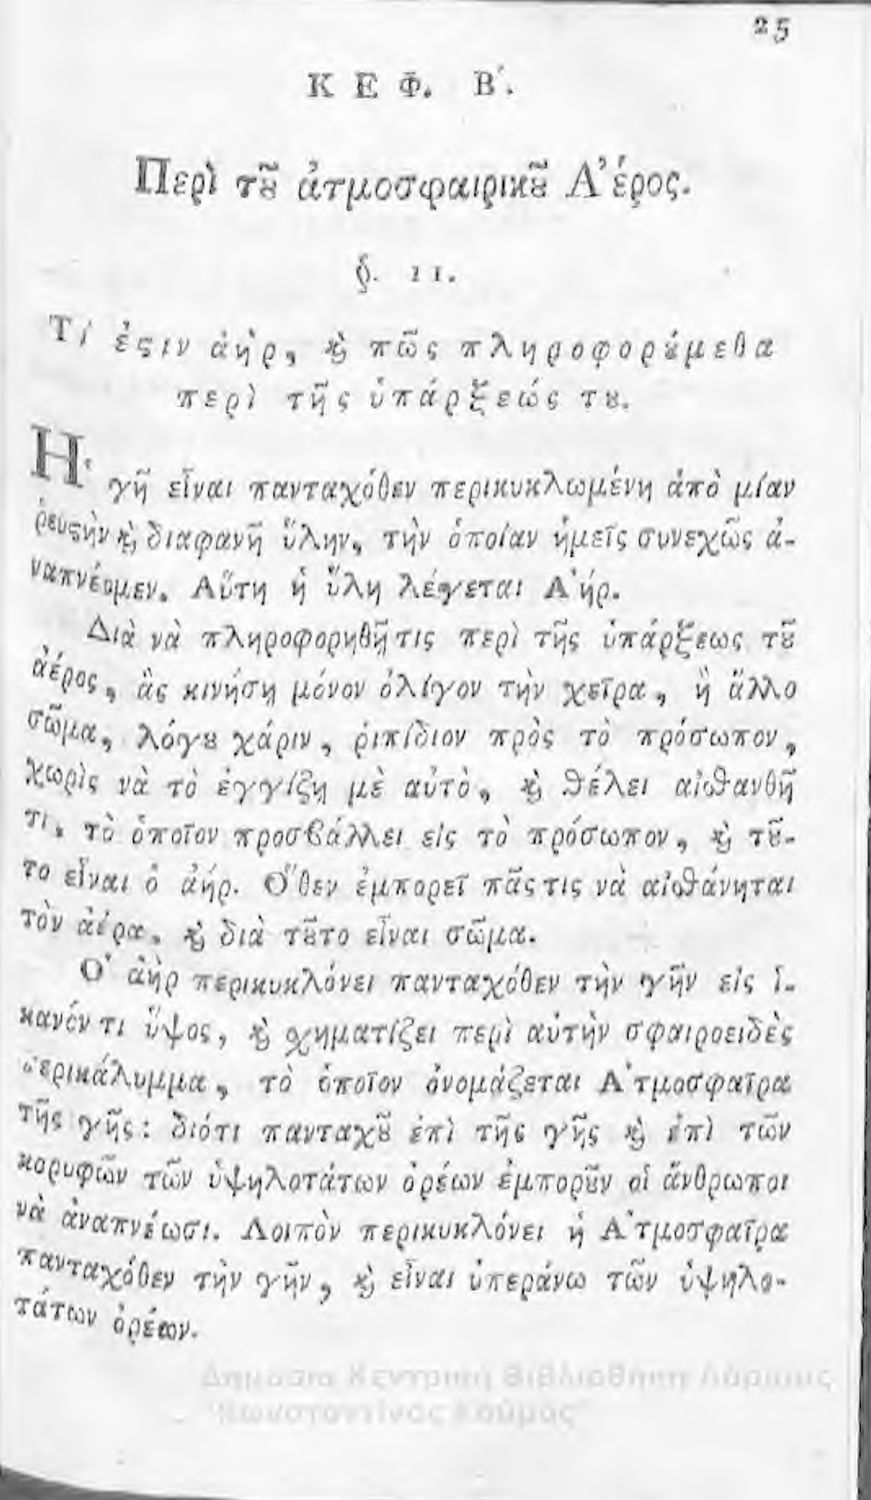 25
ΚΕΦ. Β΄.
Περὶ τȣ͂ ἀτμοσφαιρικȣ͂ Ἀέρος.
§. 11.
Τί ἐϛιν ἀὴρ, ϗ̀ πῶς πληροφορȣ́μεθα
περὶ τῆς ὑπάρξεώς τȣ.
Ἡ γῆ εἶναι πανταχόθεν περικυκλωμένη ἀπὸ μίαν
ῥευϛὴν ϗ̀ διαφανῆ ὕλην, τὴν ὁποίαν ἡμεῖς συνεχῶς ἀ-
ναπνέομεν. Αὕτη ἡ ὕλη λέγεται Ἀήρ.
Διὰ νὰ πληροφορηθῇ τις περὶ τῆς ὑπάρξεως τȣ͂
ἀέρος, ἂς κινήσῃ μόνον ὀλίγον τὴν χεῖρα, ἢ ἄλλο
σῶμα, λόγȣ χάριν, ῥιπίδιον πρὸς τὸ πρόσωπον,
χωρὶς νὰ τὸ ἐγγίζῃ μὲ αὐτὸ, ϗ̀ θέλει αἰσθανθῆ
τι, τὸ ὁποῖον προσβάλλει εἰς τὸ πρόσωπον, ϗ̀ τȣ͂-
το εἶναι ὁ ἀήρ. Ὅθεν ἐμπορεῖ πᾶς τις νὰ αἰσθάνηται
τὸν ἀέρα, ϗ̀ διὰ τȣ͂το εἶναι σῶμα.
Ὁ ἀὴρ περικυκλόνει πανταχόθεν τὴν γῆν εἰς ἱ-
κανόν τι ὕψος, ϗ̀ σχηματίζει περὶ αὐτὴν σφαιροειδὲς
περικάλυμμα, τὸ ὁποῖον ὀνομάζεται Ἀτμοσφαῖρα
τῆς γῆς: διότι πανταχȣ͂ ἐπὶ τῆς γῆς ϗ̀ ἐπὶ τῶν
κορυφῶν τῶν ὑψηλοτάτων ὀρέων ἐμπορȣ͂ν οἱ ἄνθρωποι
νὰ ἀναπνέωσι. Λοιπὸν περικυκλόνει ἡ Ἀτμοσφαῖρα
πανταχόθεν τὴν γῆν, ϗ̀ εἶναι ὑπεράνω τῶν ὑψηλο-
τάτων ὀρέων.
Δημόσια Κεντρική Βιβλιοθήκη Λάρισας
"Κωνσταντίνος Κούμας"